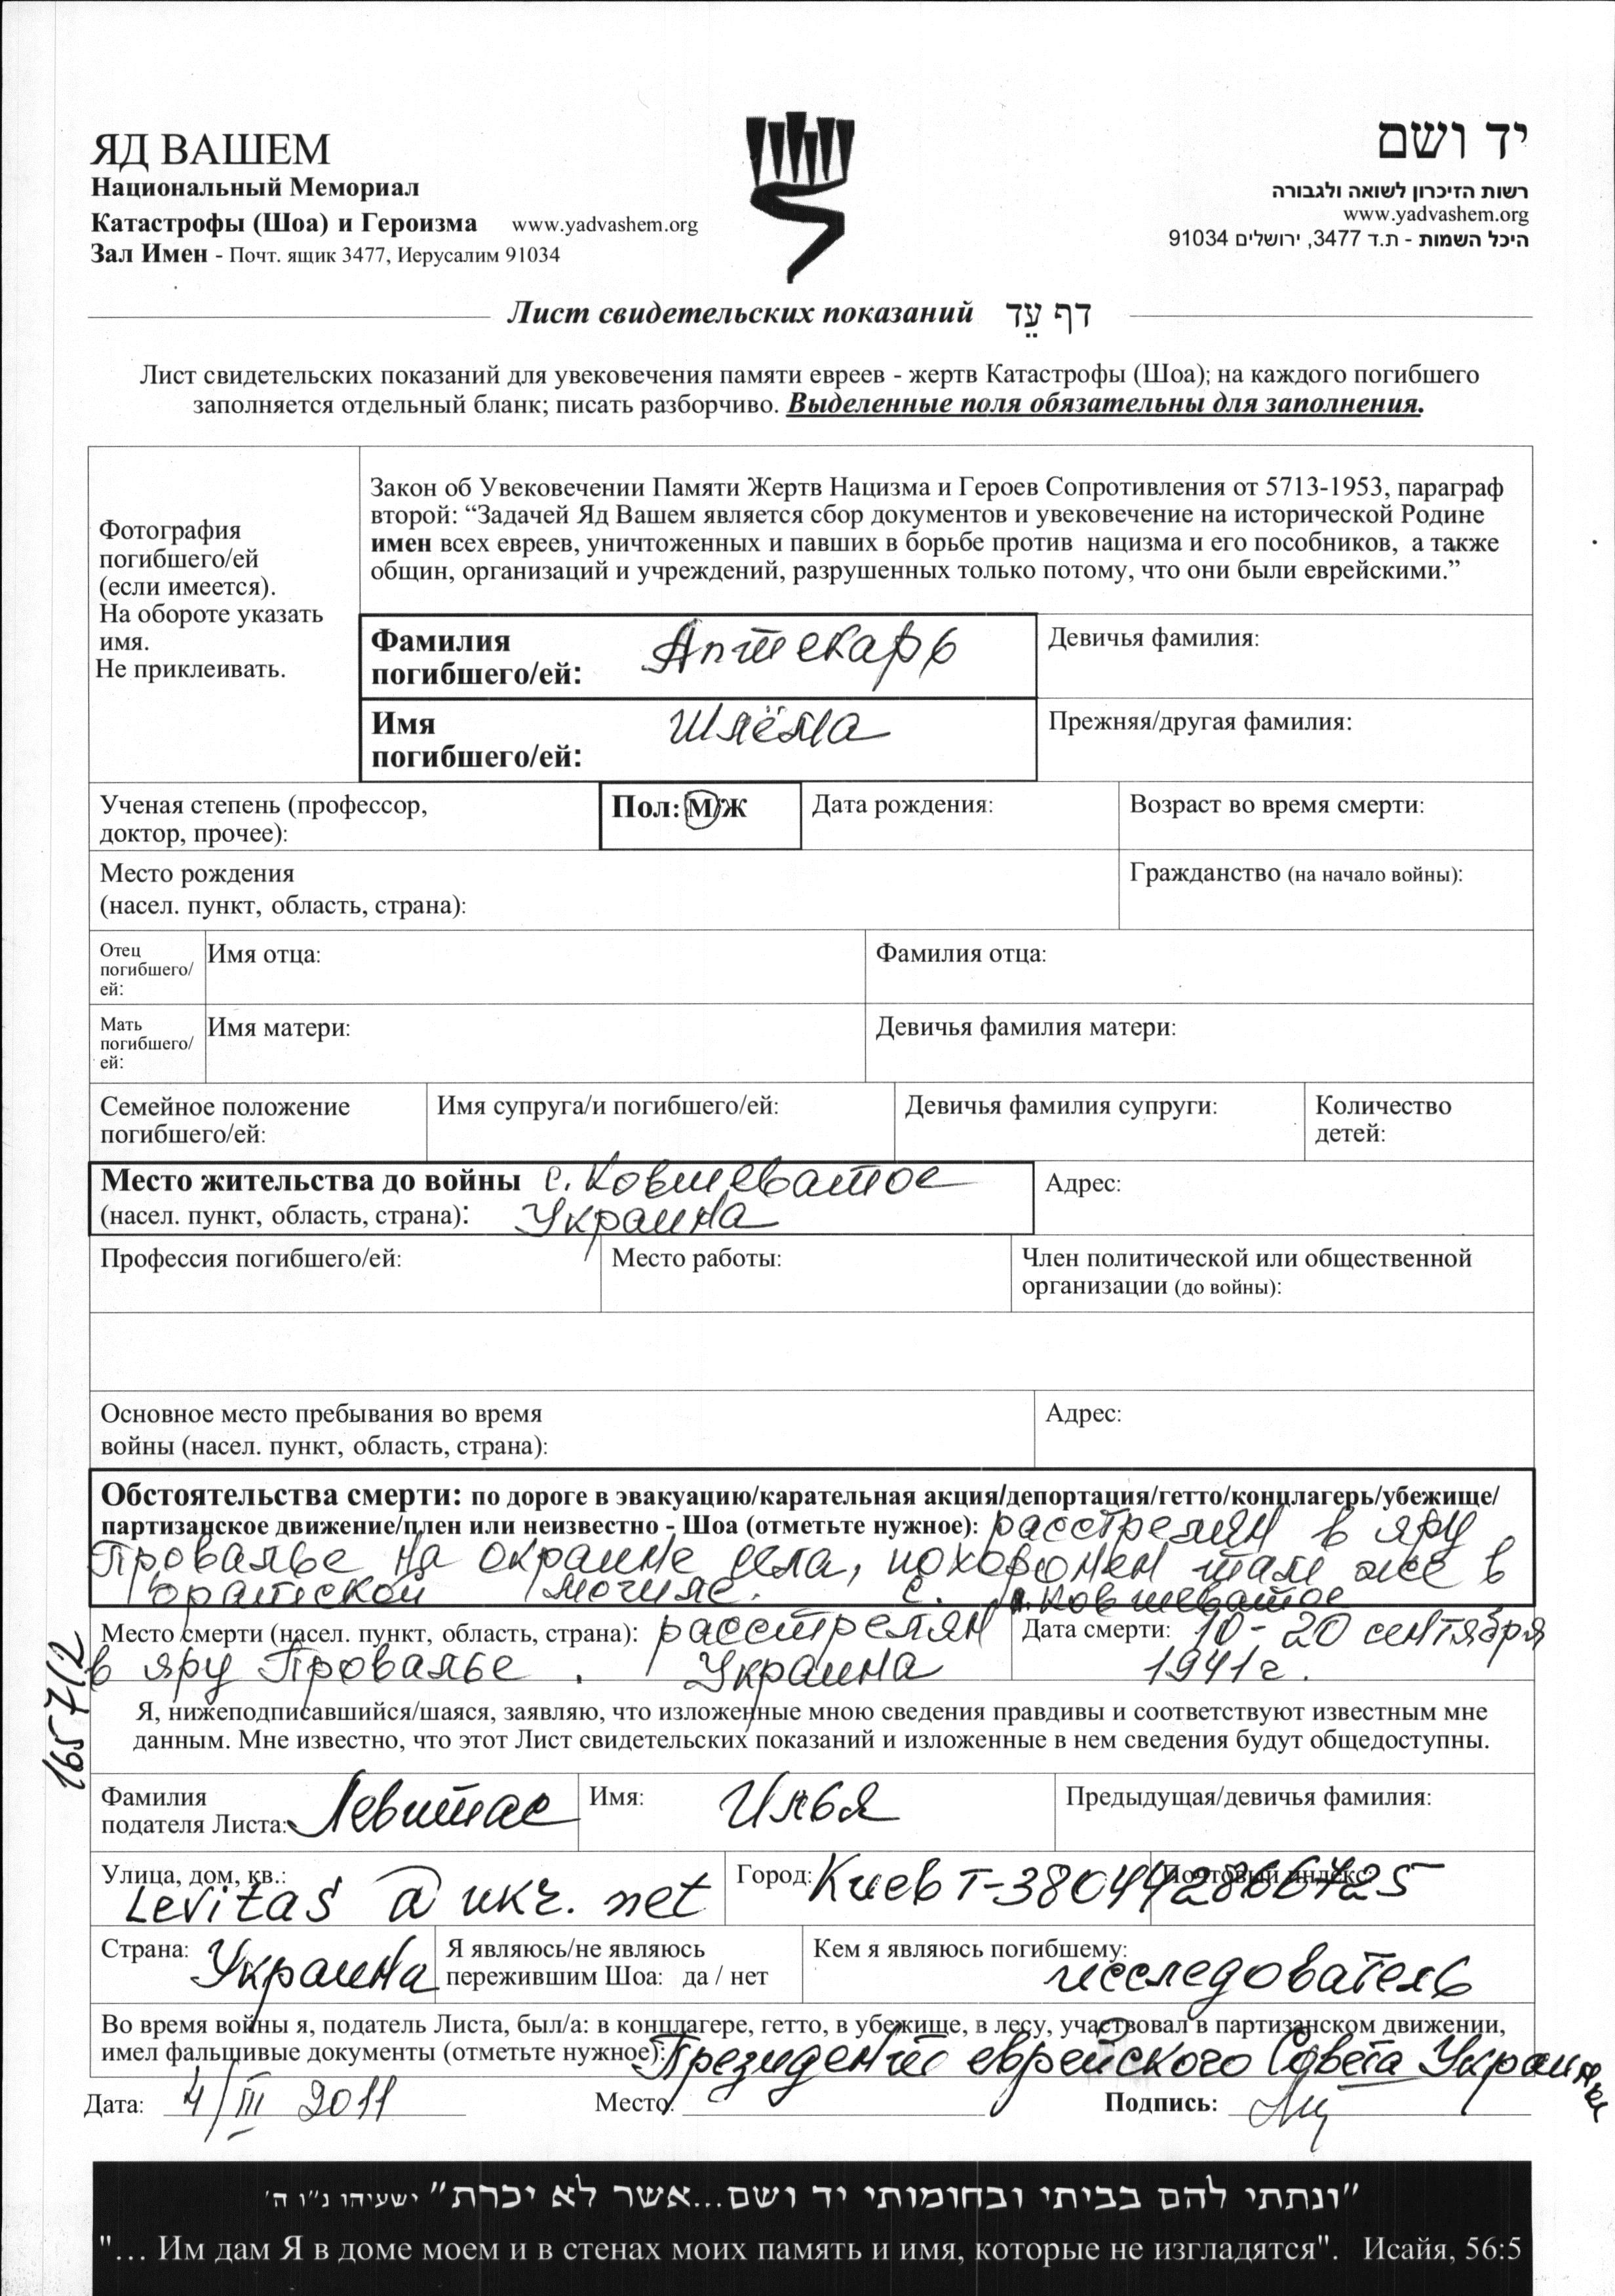 ЯД ВАШЕМ
Национальный Мемориал
Катастрофы (Шоа) и Героизма www.yadvashem.org
Зал Имен - Почт. ящик 3477, Иерусалим 91034
יד ושם
רשות הזיכרון לשואה ולגבורה
www.yadvashem.org
היכל השמות - ת.ד 3477, ירושלים 91034
Лист свидетельских показаний דף עֵד
Лист свидетельских показаний для увековечения памяти евреев - жертв Катастрофы (Шоа); на каждого погибшего
заполняется отдельный бланк; писать разборчиво. Выделенные поля обязательны для заполнения.
Фотография
погибшего/ей
(если имеется).
На обороте указать
имя.
Не приклеивать.
Закон об Увековечении Памяти Жертв Нацизма и Героев Сопротивления от 5713-1953, параграф
второй: “Задачей Яд Вашем является сбор документов и увековечение на исторической Родине
имен всех евреев, уничтоженных и павших в борьбе против нацизма и его пособников, а также
общин, организаций и учреждений, разрушенных только потому, что они были еврейскими.”
Фамилия
погибшего/ей: Аптекарь
Девичья фамилия:
Имя
погибшего/ей: Шлёма
Прежняя/другая фамилия:
Ученая степень (профессор,
доктор, прочее):
Пол: М/Ж
Дата рождения:
Возраст во время смерти:
Место рождения
(насел. пункт, область, страна):
Гражданство (на начало войны):
Отец
погибшего/
ей:
Имя отца:
Фамилия отца:
Мать
погибшего/
ей:
Имя матери:
Девичья фамилия матери:
Семейное положение
погибшего/ей:
Имя супруга/и погибшего/ей:
Девичья фамилия супруги:
Количество
детей:
Место жительства до войны с. Ковшеватое
(насел. пункт, область, страна): Украина
Адрес:
Профессия погибшего/ей:
Место работы:
Член политической или общественной
организации (до войны):
Основное место пребывания во время
войны (насел. пункт, область, страна):
Адрес:
Обстоятельства смерти: по дороге в эвакуацию/карательная акция/депортация/гетто/концлагерь/убежище/
партизанское движение/плен или неизвестно - Шоа (отметьте нужное): расстрелян в яру
Провалье на окраине села, похоронен там же в
братской могиле. с. Ковшеватое
Место смерти (насел. пункт, область, страна): расстрелян
в яру Провалье. Украина
Дата смерти: 10-20 сентября
1941г.
1657/2
Я, нижеподписавшийся/шаяся, заявляю, что изложенные мною сведения правдивы и соответствуют известным мне
данным. Мне известно, что этот Лист свидетельских показаний и изложенные в нем сведения будут общедоступны.
Фамилия
подателя Листа: Левитас
Имя: Илья
Предыдущая/девичья фамилия:
Улица, дом, кв.:
Levitas @ ukr. net
Город: Киев т-380442866725
Почтовый индекс:
Страна: Украина
Я являюсь/не являюсь
пережившим Шоа: да / нет
Кем я являюсь погибшему:
исследователь
Во время войны я, податель Листа, был/а: в концлагере, гетто, в убежище, в лесу, участвовал в партизанском движении,
имел фальшивые документы (отметьте нужное): Президент еврейского Совета Украины
Дата: 4/III 2011
Место:
Подпись:
”ונתתי להם בביתי ובחומותי יד ושם...אשר לא יכרת” ישעיהו נ"ו ה'
"... Им дам Я в доме моем и в стенах моих память и имя, которые не изгладятся". Исайя, 56:5